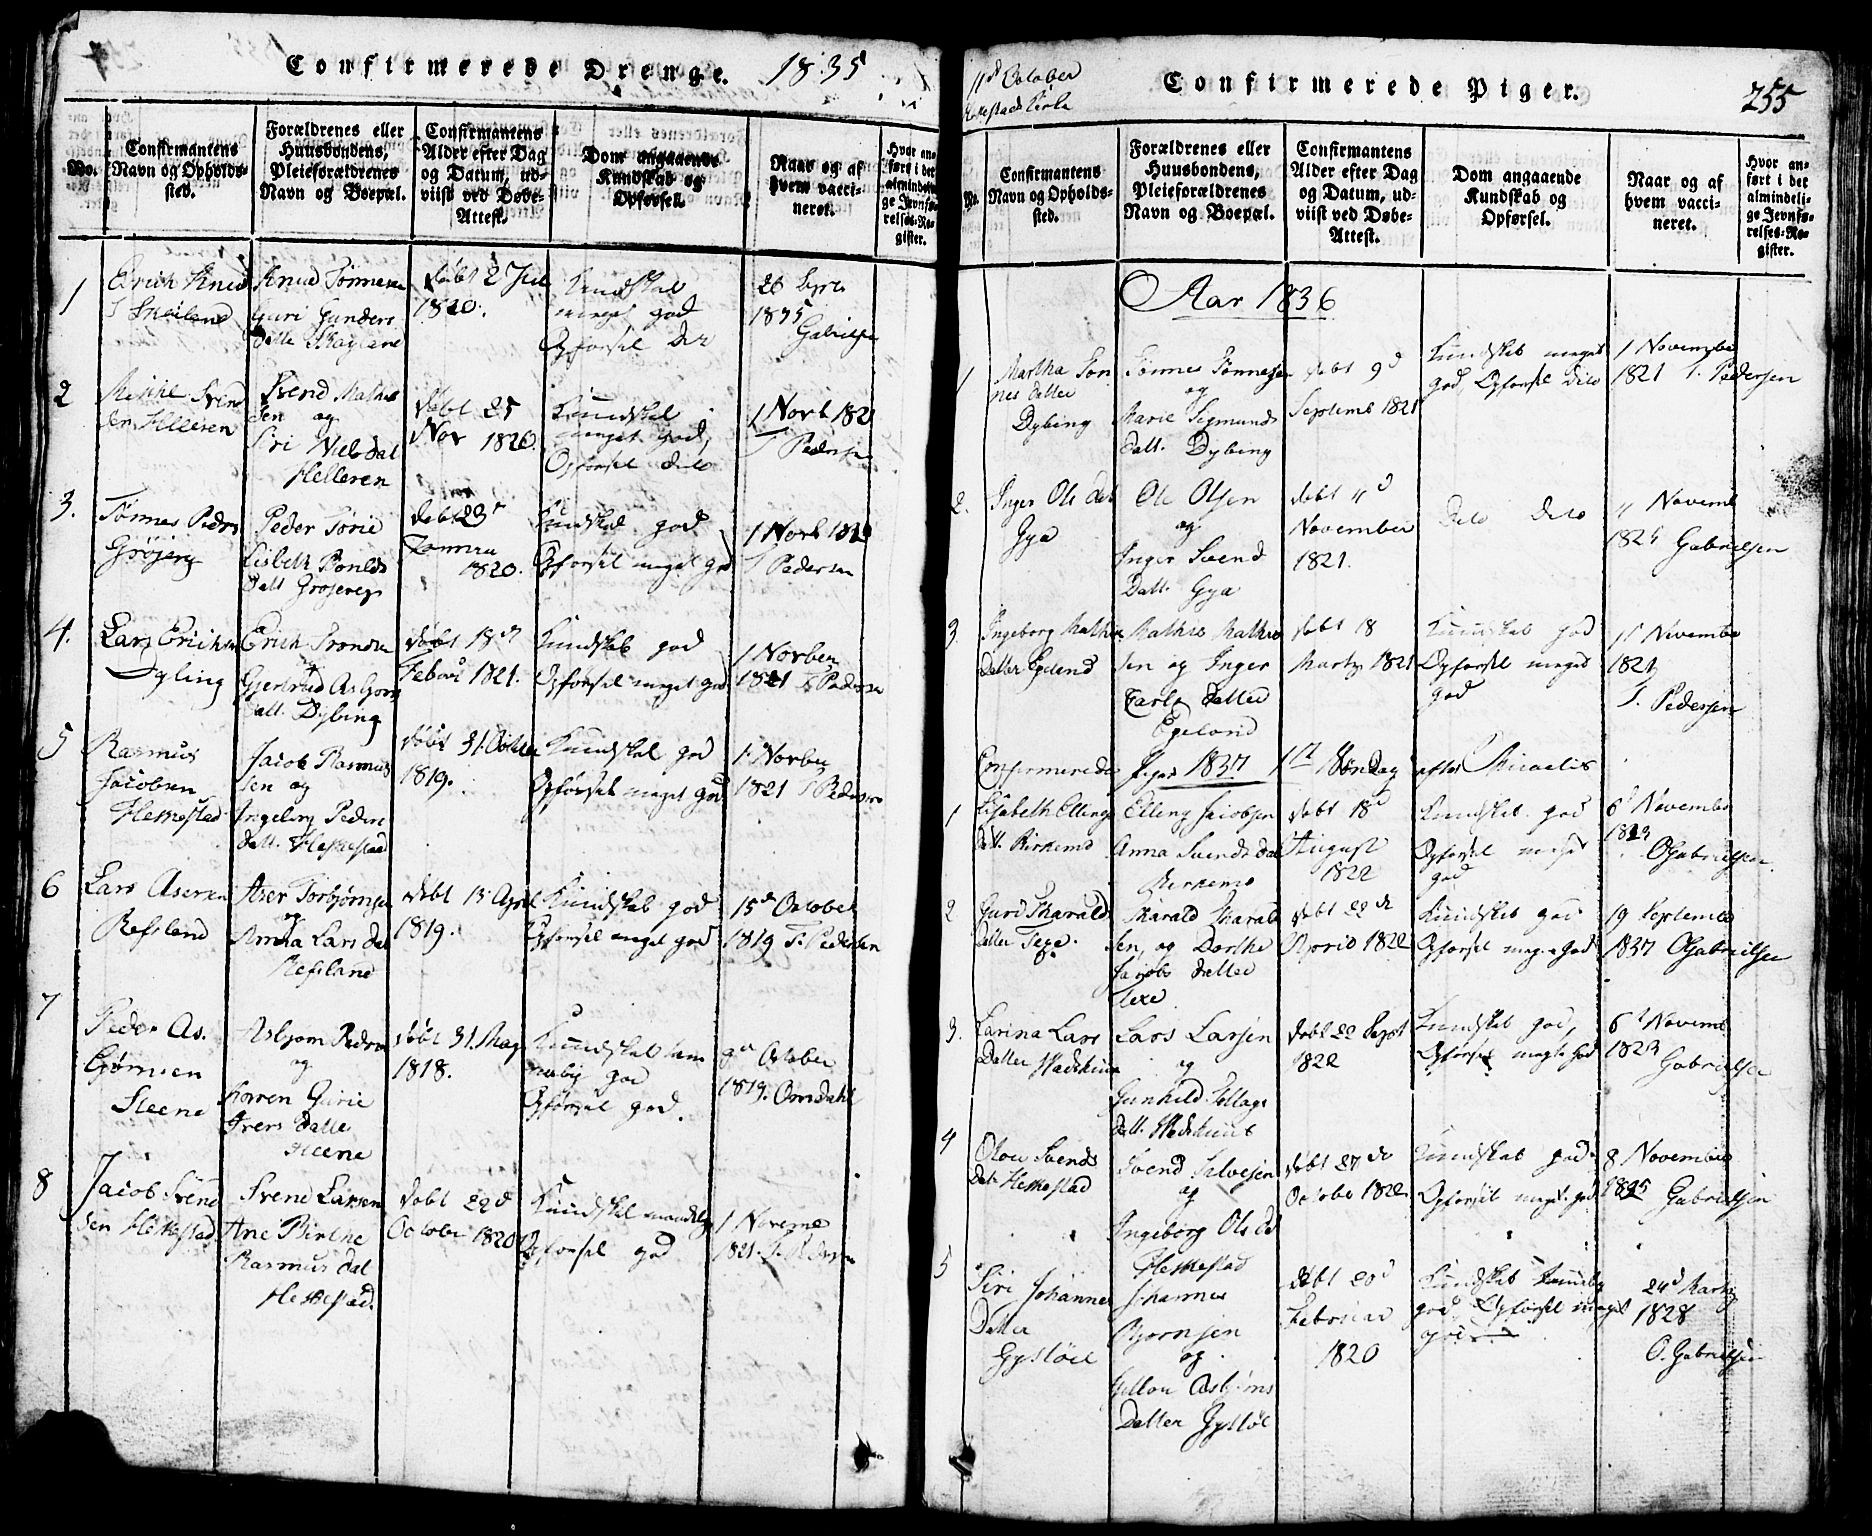 Confirmerede Drenge. 1835
No.
Confirmantens
Navn og Opholds-
sted.
Forældrenes eller
Huusbondens,
Pleieforældrenes
Navn og Boepæl.
Confirmantens
Alder efter Dag
og Datum, ud-
viist ved Døbe-
Attest.
Dom angaaende
Kundskab og
Opførsel.
Naar og af
hvem vacci-
neret.
Hvor an-
ført i det
almindeli-
ge Jevnfø-
relses-Re-
gister.
1
Erich Knud
Knud Tønnesen
Guri Gunders
Datte
døbt 2 Jul
1820.
Kundskab
meget god
Opførsel
26
1835
2
Svend
sen Helleren
Svend Mathis
sen og
Siri Niels dat
Helleren
døbt 25
Nov 1820.
Kundskab
meget god,
Opførsel dito
1 Novb 1821
Pedersen
3.
Tønnes Peders
Peder
Lisbeth
Datt
1820.
Kundskab god
Opførsel meget god
1 Novb
Pedersen
4.
Lars Erichsen
Dybing
Erich
Gjertrud Asbjørns
Datt. Dybing
døbt 18
1821.
Kundskab god
Opførsel meget god
1 Novber
1821 Pedersen
5
Rasmus
Jacobsen
Heskestad
Jacob Rasmus
sen og
Ingeborg Peders
datt. Heskestad
døbt 31. Octber
1819.
Kundskab god
Opførsel meget god
1 Novber
1821 Pedersen
6
Lars Asersen
Refsland
Aser Torbjørnsen
og
Anna Lars dat
Refsland
døbt 13 April
1819.
Kundskab god
Opførsel meget god
15 October
1819 T. Pedersen
7
Peder As-
bjørnsen
Steene
Asbjørn Pedersen
og
Gurie
Ivers datte
Steene
døbt 31. May
1818.
Kundskab tem
melig god
Opførsel god.
October
1819. Omdahl
8
Jacob Svend
sen Heskestad
Svend Larsen
Ane Birthe
Rasmus dat
Heskestad.
døbt 22d
October 1820
Kundskab maadelig
Opførsel god
1 Novem
1821. T. Pedersen
October
Heskestads Kirke
Confirmerede Piger.
255
No.
Confirmantens
Navn og Opholds-
sted.
Forældrenes eller
Huusbondens,
Pleieforældrenes
Navn og Boepæl.
Confirmantens
Alder efter Dag
og Datum, ud-
viist ved Døbe-
Attest.
Dom angaaende
Kundskab og
Opførsel.
Naar og af
hvem vacci-
neret.
Hvor an-
ført i det
almindeli-
ge Jevnfø-
relses-Re-
gister.
Aar 1836
1
Martha Tøn
nes datter
Dybing
Tønnes Tønnesen
og
Marie Sigmunds
Datt. Dybing
døbt 9d
Septemb 1821
Kundskab meget
god, Opførsel dito
1 November
1821 T. Pedersen
2.
Inger Ols dat
Gya
Ole Olsen
og
Inger Svend
Datt. Gya
døbt
November
1821.
Dito dito
Novemb
Gabrielsen
3
Ingeborg Mathis
datter Egelend
Mathis Mathis
sen og Inger
Carls datter
Egeland
døbt 18
Marty 1821
Kundskab god
Opførsel meget
god
November
1821
T. Pedersen
Confirmerede Piger 1837 1st Søndag efter Micaelis
1
Elisabeth Ellings
datt. Birkemo
Elling Jacobsen
Anna Svends dat
Birkemo
døbt 18d
August
1822
Kundskab god
Opførsel meget
god
6 November
1823
O Gabrielsen
2
Guro Tharalds
datter Texe.
Tharald Tharald
sen og Dorthe
Jacobs datter
Texe
døbt 22d
April 1822
Kundskab god
Opførsel meg. god
19 Septemb
1837 O Gabrielsen
3.
Karina Lars
Datter
Lars Larsen
og
Gunhild Tollags
datt.
døbt 22 Sept
1822
Kundskab god,
Opførsel megt. god
6 Novemb
1823
Gabrielsen
4
Svends
Dat. Heskestad
Svend Salvesen
og
Ingeborg Ols d
Heskestad
døbt 27de
October 1822.
Kundskab god
Opførsel meget god
8 November
Gabrielsen
5
Siri Johannes
Datter
Gystøel
Johannes
Bjørnsen
og
Asbjørns
Datter Gystøl
døbt 20d
Februar
1820
Kundskab temmelig
god, Opførsel meget
god
24d Marty
1828
O. Gabrielsen